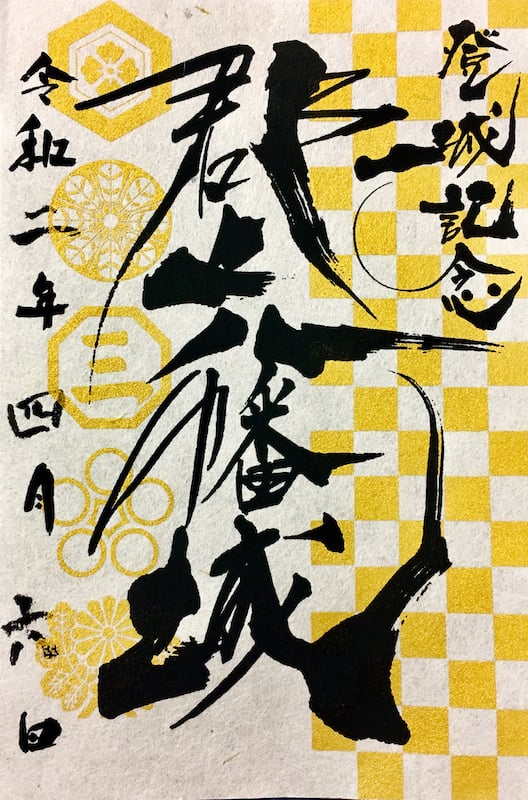 登城記念
郡上八幡城
令和二年四月六日